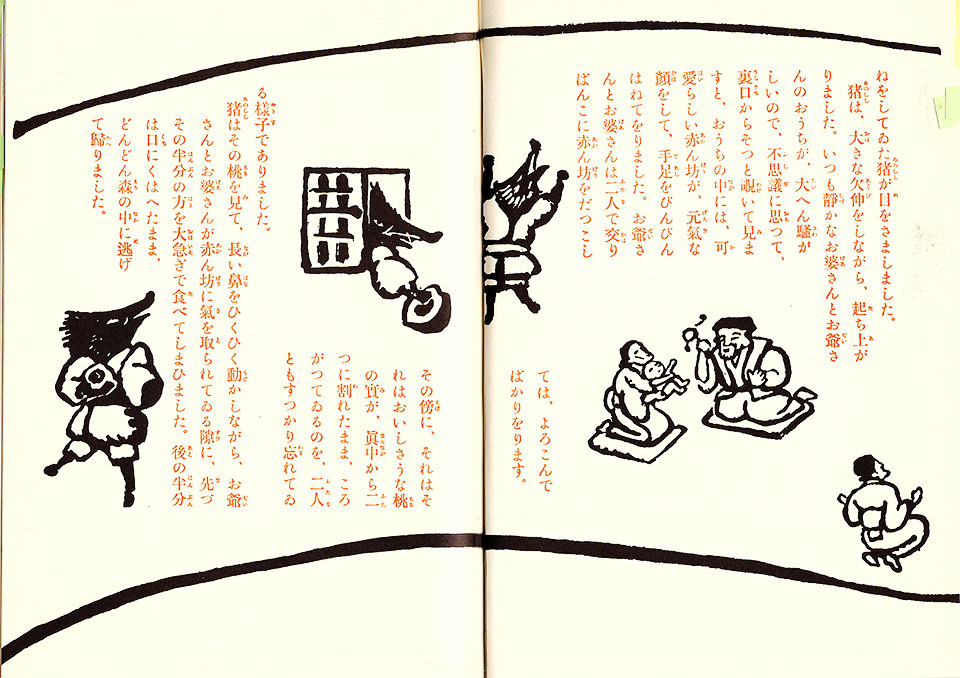 ねをしてゐた猪が目をさましました。
猪は、大きな欠伸をしながら、起ち上が
りました。いつも靜かなお婆さんとお爺さ
んのおうちが、大へん騷が
しいので、不思議に思つて、
裏口からそつと覗いて見ま
すと、おうちの中には、可
愛らしい赤ん坊が、元氣な
顏をして、手足をぴんぴん
はねてをりました。お爺さ
んとお婆さんは二人で交り
ばんこに赤ん坊をだつこし
ては、よろこんで
ばかりをります。
その傍に、それはそ
れはおいしさうな桃
の實が、眞中から二
つに割れたまま、ころ
がつてゐるのを、二人
ともすつかり忘れてゐ
る樣子でありました。
猪はその桃を見て、長い鼻をひくひく動かしながら、お爺
さんとお婆さんが赤ん坊に氣を取られてゐる隙に、先づ
その半分の方を大急ぎで食べてしまひました。後の半分
は口にくはへたまま、
どんどん森の中に逃げ
て歸りました。